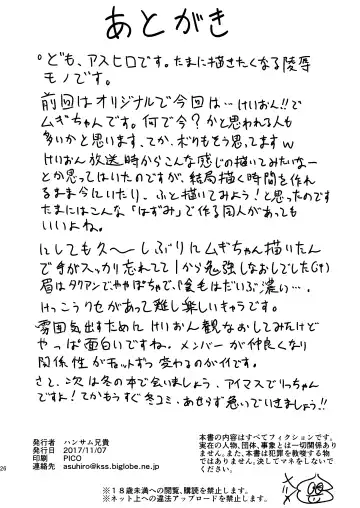 あとがき
どもっ、アスヒロです。たまに描きたくなる陵辱
モノです。
前回はオリジナルで今回は…けいおん!!で
ムギちゃんです。何で今?かと思われる人も
多いかと思います、てか、ボクもそう思ってますw
けいおん放送時からこんな感じの描いてみたいなー
とか思ってはいたのですが、結局描く時間を作れ
るまま今にいたり、ふと描いてみよう!と思ったのです
たまにはこんな「はずみ」で作る同人があっても
いいよね。
にしても久〜しぶりにムギちゃん描いたん
で手がスッカリ忘れてて1から勉強しなおしでした
眉はタクアンでややぼちゃで、毛はだいぶ濃い…、
けっこうクセがあって難し楽しいキャラです。
雰囲気出すためにけいおん観なおしてみたけど
やっぱ面白いですね。メンバーが仲良くなり
関係性がちょっとずつ変わるのがイイです。
さて、次は冬の本で会いましょう、アイマスでりっちゃん
ですよ!てかもうすぐ冬コミ、あせらず急いでいきましょう!!
発行者 ハンサム兄貴
発行日 2017/11/07
印刷 PICO
連絡先 asuhiro@kss.biglobe.ne.jp
本書の内容はすべてフィクションです。
実在の人物、団体、事象とは一切関係あり
ません。また、本書は犯罪を教唆する物
ではありません。決してマネをしないで
ください。
26
※18歳未満への閲覧、購読を禁止します。
※ネット上への違法アップロードを禁止します。